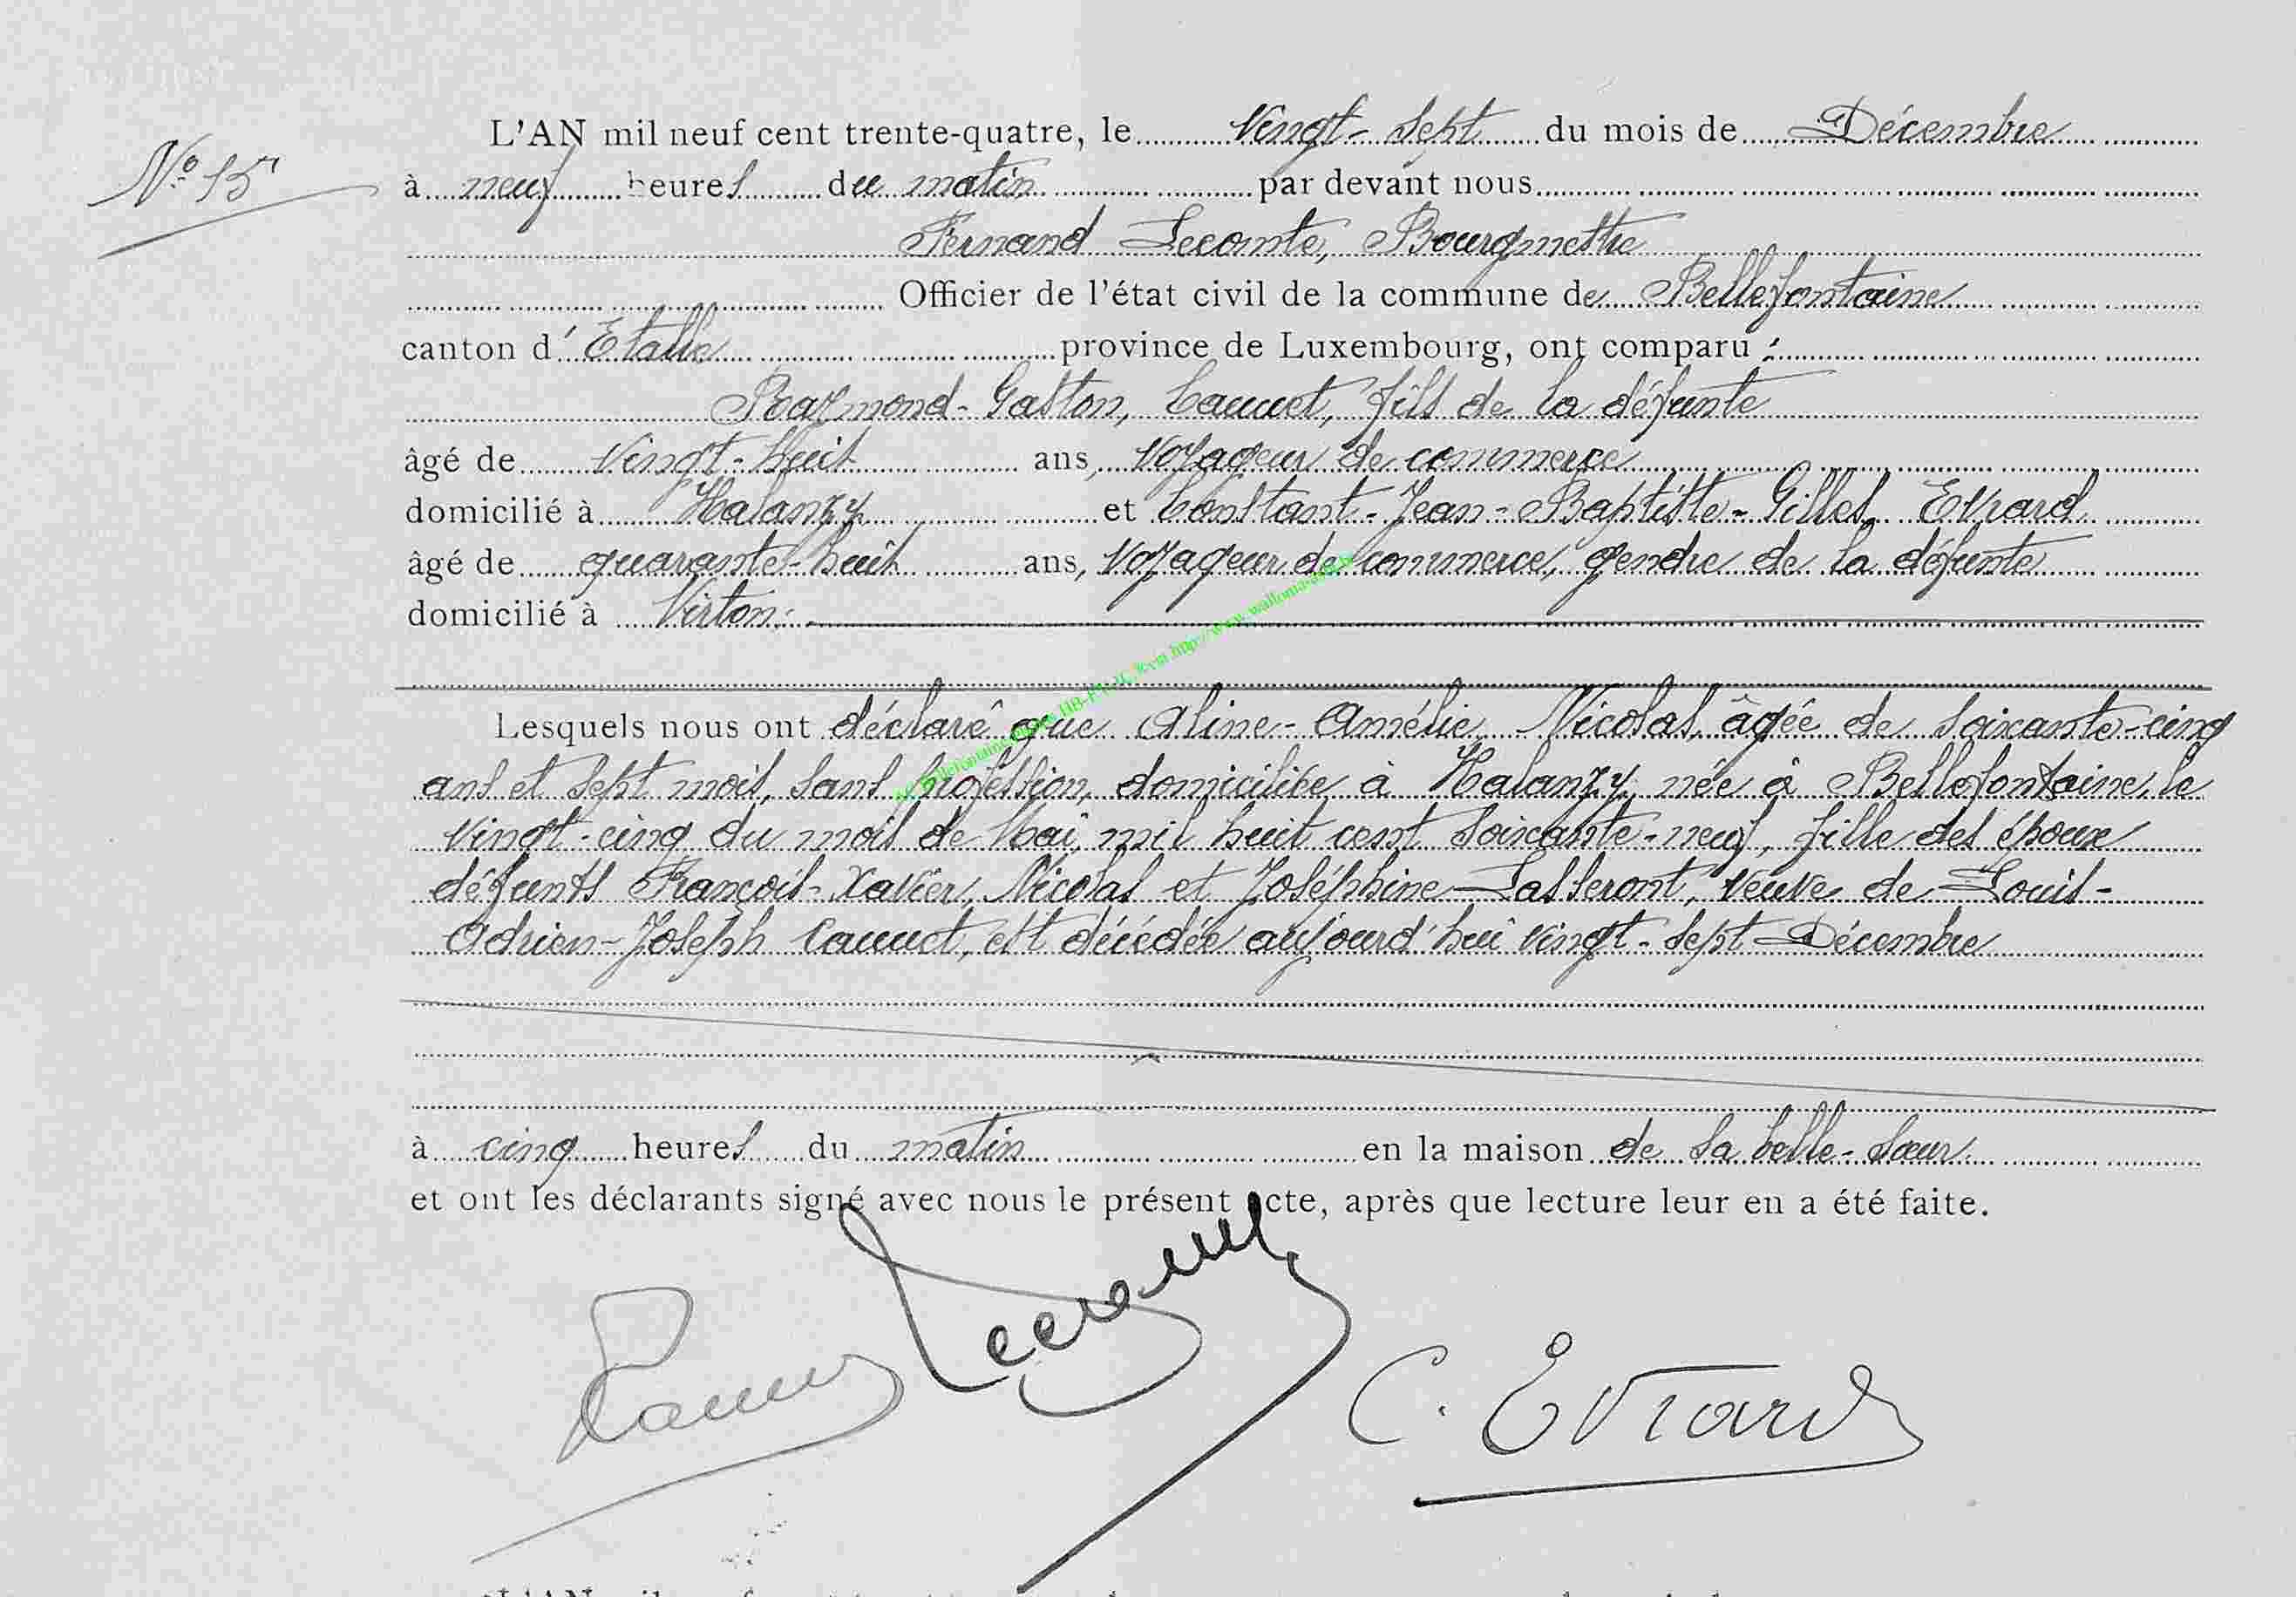 L'AN mil neuf cent trente-quatre, le vingt-sept du mois de Décembre
N° 15
à neuf heures du matin par devant nous
Fernand Lecomte, Bourgmestre
Officier de l'état civil de la commune de Bellefontaine
canton d'Etalle province de Luxembourg, ont comparu :
Raymond-Gaston, Cauuet, fils de la défunte
âgé de vingt-huit ans, voyageur de commerce
domicilié à Halanzy et Constant-Jean-Baptiste-Gilles, Evrard
âgé de quarante-huit ans, voyageur de commerce, gendre de la défunte
domicilié à Virton.
Lesquels nous ont déclaré que Aline-Amélie, Nicolas, âgée de soixante-cinq
ans et sept mois, sans profession, domiciliée à Halanzy, née à Bellefontaine, le
vingt-cinq du mois de Mai, mil huit cent soixante-neuf, fille des époux
défunts François-Xavier, Nicolas et Joséphine Lasseront, veuve de Louis-
Adrien-Joseph Cauuet, est décédée aujourd'hui vingt-sept Décembre
à cinq heures du matin en la maison de sa belle-sœur
et ont les déclarants signé avec nous le présent acte, après que lecture leur en a été faite.
C. Evrard